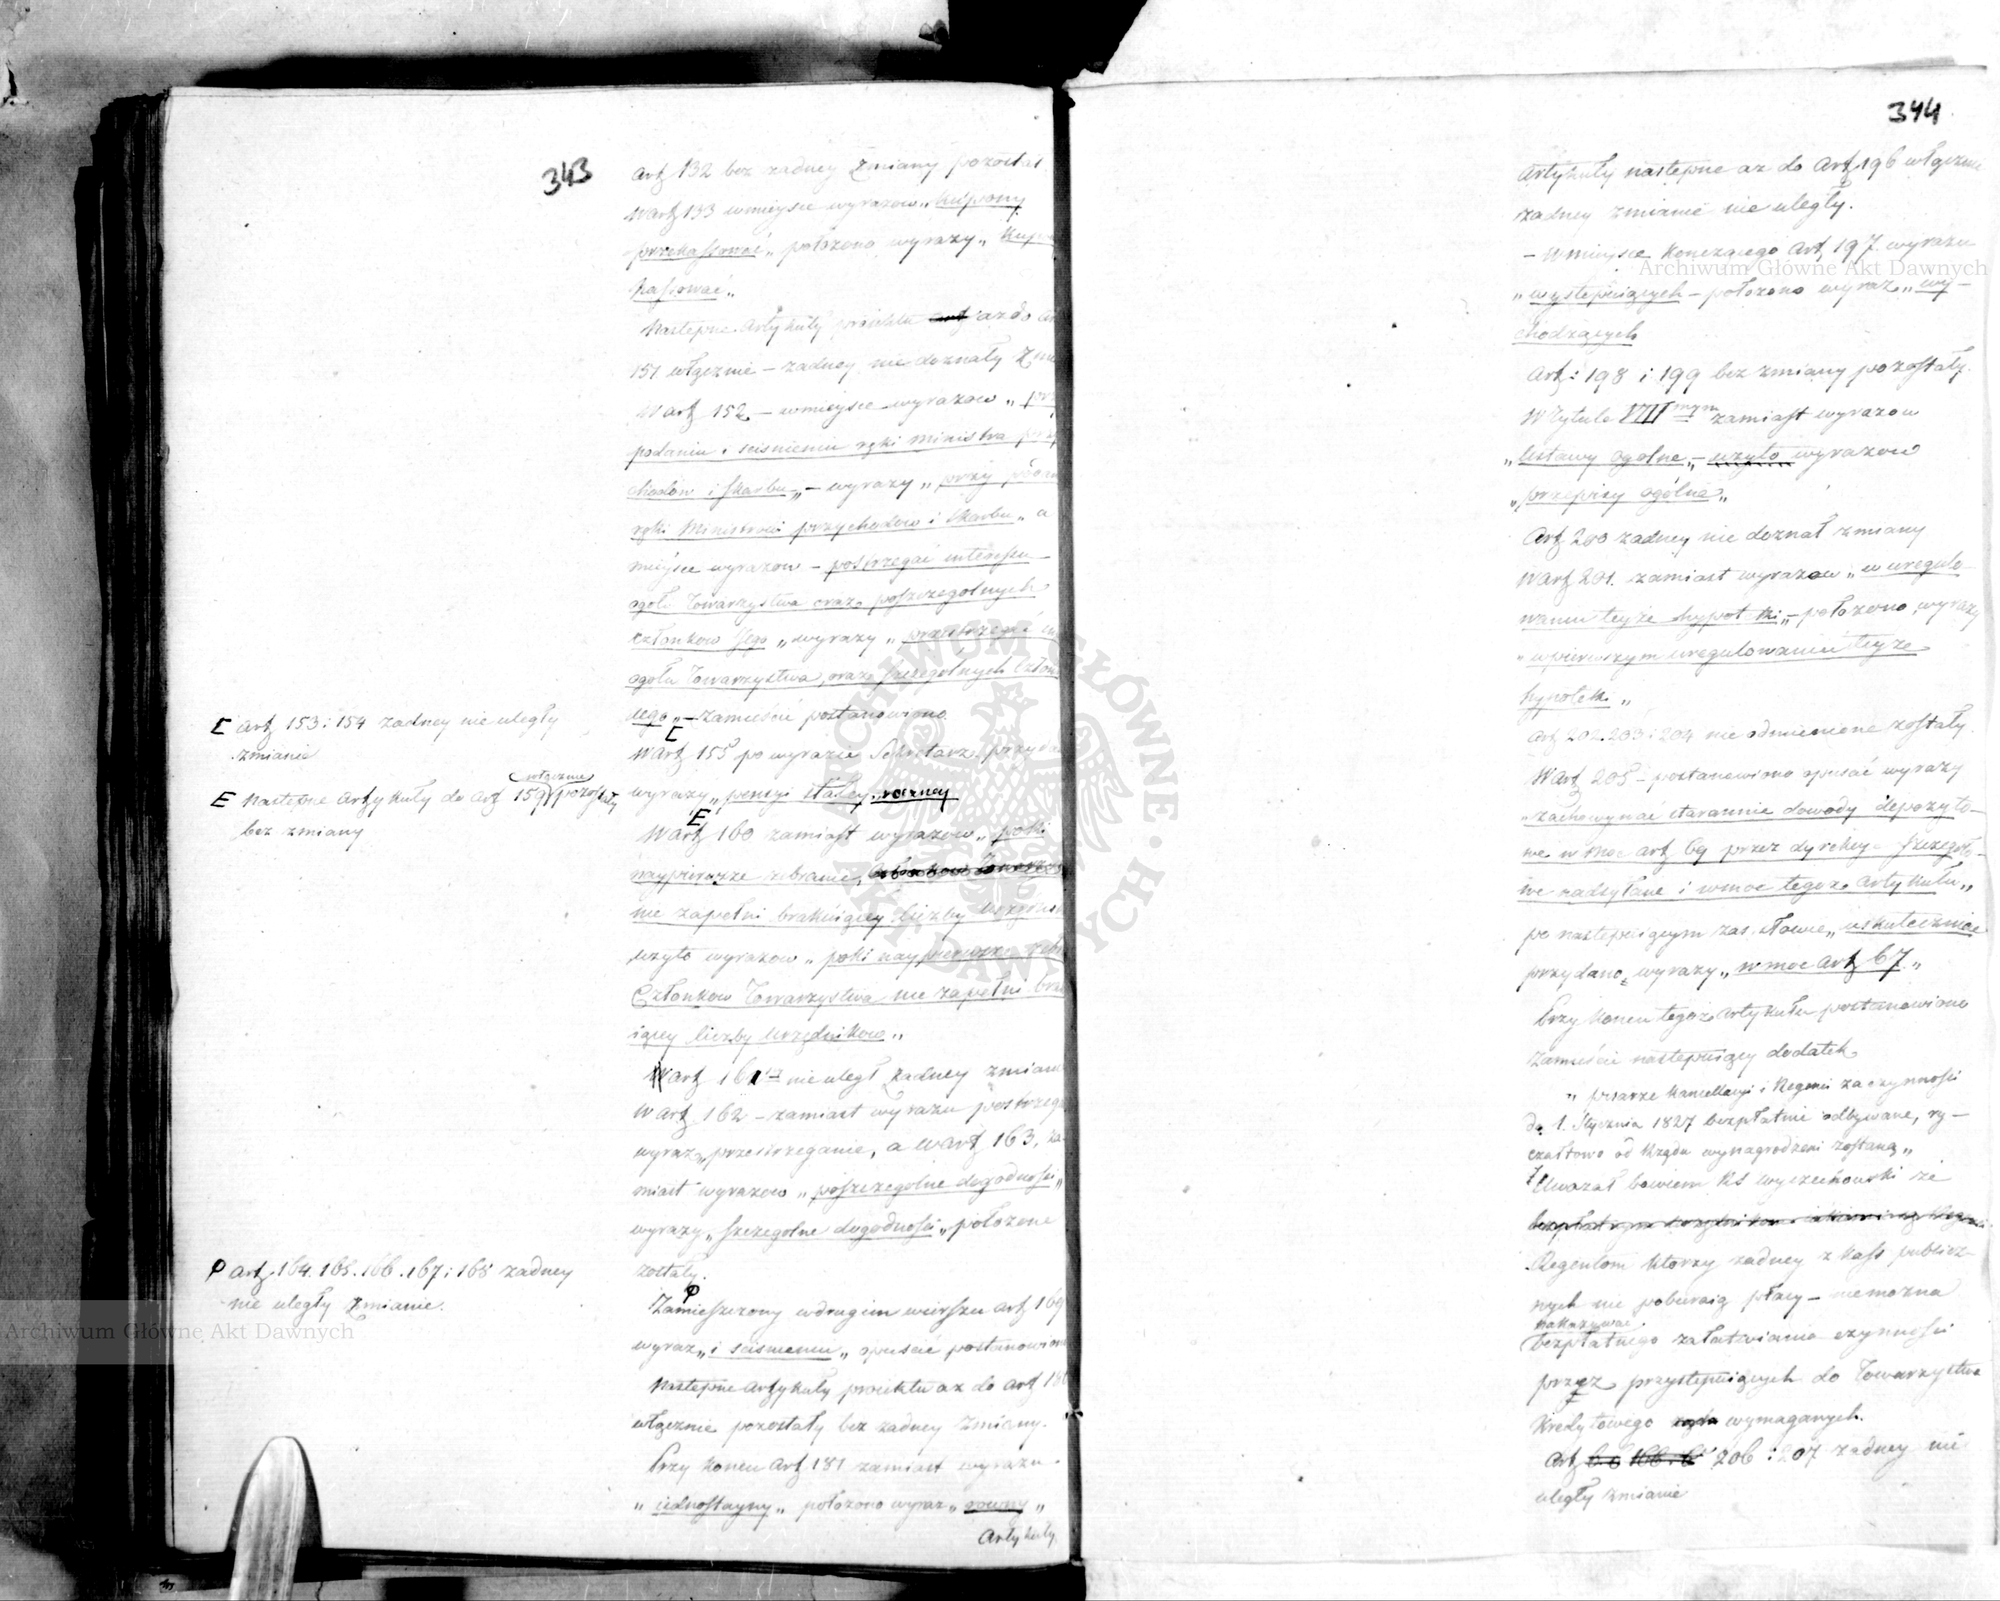 343
Art 132 bez żadney zmiany pozostał
W art 133 w mieysce wyrazow „kupony
przekassować„ położono wyrazy „
kassować„
Następne Artykuły proiektu aż do
151 włącznie – żadney nie doznały
W art 152 – w mieysce wyrazow „
podaniu i sciśnieniu ręki Ministra
chodów i skarbu„ – wyrazy „przy
ręki Ministrowi przychodow i skarbu„ a
mieysce wyrazow – postrzegać interessu
ogółu Towarzystwa oraz poszczegolnych
członkow jego „wyrazy „przestrzegać
ogółu Towarzystwa, oraz szczegolnych
iego„ – zamieścić postanowiono.
E Art 153 i 154 żadney nie uległy
zmianie
W art 155 po wyrazie Sekretarz
wyrazy „pensyi stałey roczney
E Następne Artykuły do Art 159 włącznie pozostały
bez zmiany
W art 160 zamiast wyrazow „poki
naypierwsze zebranie
nie zapełni brakuiącey liczby
użyto wyrazow „poki naypierwsze
Członkow Towarzystwa nie zapełni
iącey liczby urzędnikow„
Art 161 nie uległ żadney
W art 162 – zamiast wyrazu
wyraz „przestrzeganie, a w art 163, za-
miast wyrazow „poszczegolne dogodności„
wyrazy „szczegolne dogodności„ położone
zostały.
P Art 164. 165. 166. 167 i 168 żadney
nie uległy zmianie.
Zamieszczony w drugim wierszu art 169
wyraz „i sciśnieniu„ opuścić postanowiono
Następne Artykuły proiektu aż do art
włącznie pozostały bez żadney zmiany.
Przy końcu Art 181 zamiast wyrazu
„iednostayny„ położono wyraz „rowny„
Artykuły
344
Artykuły następne aż do Art 196 włącznie
żadney zmianie nie uległy.
– W mieysce kończącego Art 197 wyrazu
„występuiących – położono wyraz „wy-
chodzących
Art: 198 i 199 bez zmiany pozostały.
W Tytule VIII mym zamiast wyrazow
„Ustawy ogolne„ – użyto wyrazow
„przepisy ogólne„
Art 200 żadney nie doznał zmiany
W art 201. zamiast wyrazow „w uregulo-
waniu teyże hypoteki„ – położono wyrazy
„w pierwszym uregulowaniu teyże
hypoteki„
Art 202. 203 i 204 nie odmienione zostały.
W art 205 – postanowiono opisać wyrazy
„zachowywać starannie dowody depozyto-
we w moc art 69 przez dyrekcye szczegoło-
we nadsyłane i w moc tegoż Artykułu„
po następuiącym zaś słowie „uskutecznione
przydano wyrazy „w moc art 67„
Przy końcu tegoż Artykułu postanowiono
zamieścić następuiący dodatek
„pisarze Kancellaryi i Regenci za czynności
do 1. Stycznia 1827 bezpłatnie odbywane, ry-
czałtowo od Rządu wynagrodzeni zostaną„
Uważał bowiem RS Wyczechowski że
Regentom ktorzy żadney z kass publicz-
nych nie pobieraią płacy – nie można
nakazywać
bezpłatnego załatwiania czynności
przez przystępuiących do Towarzystwa
Kredytowego wymaganych.
Art 206 i 207 żadney nie
uległy zmianie
Archiwum Główne Akt Dawnych
Archiwum Główne Akt Dawnych
ARCHIWUM GŁÓWNE AKT DAWNYCH